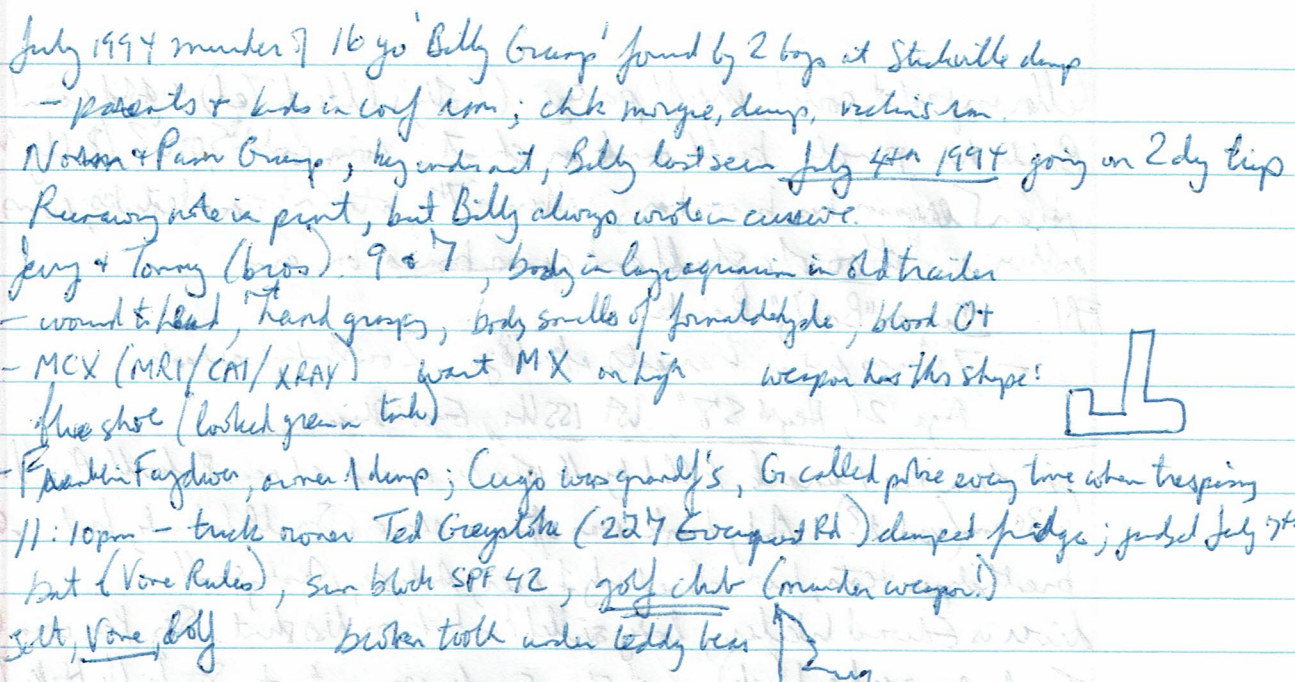 July 1994 murder of 16 yo 'Billy Gramp' found by 2 boys at Stickville dump
- parents + kids in conf room; chk morgue, dump, victim's rm
Norm + Pam Gramp, Billy last seen July 4th 1994 going on 2 day trip
Runaway note in print, but Billy always wrote in cursive.
Jerry + Tommy (bros). 9 & 7, body in large aquarium in old trailer
- wound to head, hand grasping, body smells of formaldehyde, blood O+
- MCX (MRI/CAT/XRAY) want MX on high weapon has this shape!
blue shoe (looked green in tank)
- Franklin, owner of dump; was grandf's, G called police every time when trespassing
11:10pm - truck owner Ted Greystoke (227 Rd) dumped fridge; July 7th
but (Vone Rules), sun block SPF 42, golf club (murder weapon!)
Vone, broken tooth under teddy bear